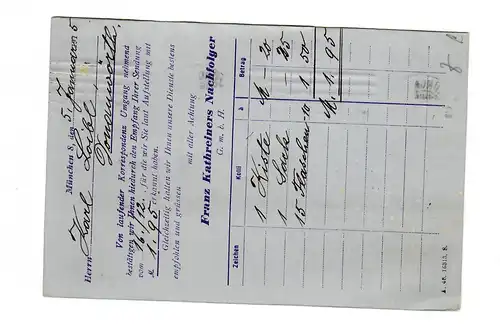 München 8, den 5. Januar 5
Herrn Karl Loibl
Von laufender Korrespondenz Umgang nehmend
bestätigen wir Ihnen hiedurch den Empfang Ihrer Sendung
vom 16./12. für die wir Sie laut Aufstellung mit
M 1.95 erkannt haben.
Gleichzeitig halten wir Ihnen unsere Dienste bestens
empfohlen und grüssen
mit aller Achtung
Franz Kathreiners Nachfolger
G. m. b. H.
Zeichen Kolli à Betrag
1 Kiste M. - 20
1 Sack - 25
15 Flaschen 10 1 50
M. 1.95